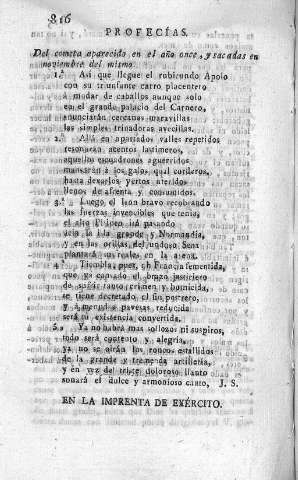 816
PROFECÍAS.
Del cometa aparecido en el año once, y sacadas en
noviembre del mismo.
1.ª Asi que llegue el rubicundo Apolo
con su triunfante carro placentero
á mudar de caballos aunque solo
en el grande palacio del Carnero,
anunciarán cercanas maravillas
las simples trinadoras avecillas.
2.ª Allá en apartados valles repetidos
resonarán acentos lastimeros,
aquellos esquadrones aguerridos
á los galos, qual corderos,
hasta dexarlos yertos
llenos de afrenta y consumidos.
3.ª Luego, el leon bravo recobrando
las fuerzas invencibles que tenia,
el alto Pirineo irá pasando
la grande y Normandía,
y en las orillas del undoso Sena
plantará sus reales en la arena.
4.ª Tiembla, pues, ó Francia fementida,
que ya cansado el brazo justiciero
de sufrir tanto crimen y homicida,
se tiene decretado, el fin postrero,
y á menudas pavesas reducida
será tu existencia convertida.
5.ª Ya no habrá mas sollozos ni suspiros,
todo será contento y alegría,
ya no se oirán los roncos estallidos
de la grande y tremenda artillería,
y en vez del triste doloroso llanto
sonará el dulce y armonioso canto, J. S.
EN LA IMPRENTA DE EXÉRCITO.